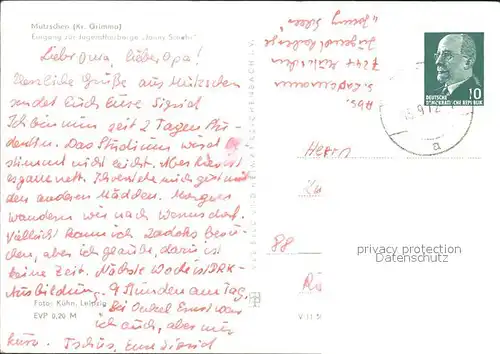 Mutzschen (Kr. Grimma)
Eingang zur Jugendherberge „Jonny Scheer"
Liebe Oma, lieber Opa!
Herzliche Grüße aus Mutzschen
sendet Euch Eure Sigrid
Ich bin nun seit 2 Tagen Stu-
dentin. Das Studium wird
stimmt nicht leicht. Aber hier ist
es ganz nett. Ich verstehe mich gut mit
den anderen Mädchen. Morgen
wandern wir nach Wermsdorf.
Vielleicht kann ich Zadoks besu-
chen, aber ich glaube, dazu ist
keine Zeit. Nächste Woche ist DRK-
Ausbildung. 9 Stunden am Tag.
Bei Onkel Ernst war
ich auch, aber nur
kurz. Tschüs, Eure Sigrid
Foto: Kühn, Leipzig
EVP 0,20 M
Abs.
7244 Mutzschen
Jugendherberge
DEUTSCHE
DEMOKRATISCHE REPUBLIK
10
9.72
a
Herrn
88
V 11 5
privacy protection
Datenschutz